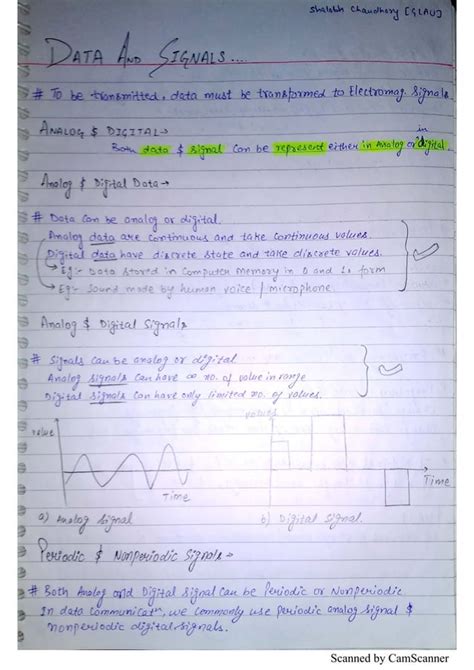 Shalabh Chaudhary [GLAU]
DATA AND SIGNALS....
# To be transmitted, data must be transformed to Electromag. Signals.
ANALOG & DIGITAL→
Both data & signal can be represent either in Analog or in digital.
Analog & Digital Data→
# Data can be analog or digital.
Analog data are continuous and take continuous values.
Digital data have discrete state and take discrete values.
→ Eg:- Data stored in Computer Memory in 0 and 1s form
→ Eg:- Sound made by human voice / microphone
Analog & Digital Signals
# Signals can be analog or digital
Analog signals can have ∞ no. of value in range
Digital signals can have only limited no. of values.
value
values
Time
Time
a) Analog Signal
b) Digital Signal.
Periodic & Nonperiodic Signals→
# Both Analog and Digital Signal can be Periodic or Nonperiodic
In data communicatn, we commonly use periodic analog signal &
nonperiodic digital signals.
Scanned by CamScanner